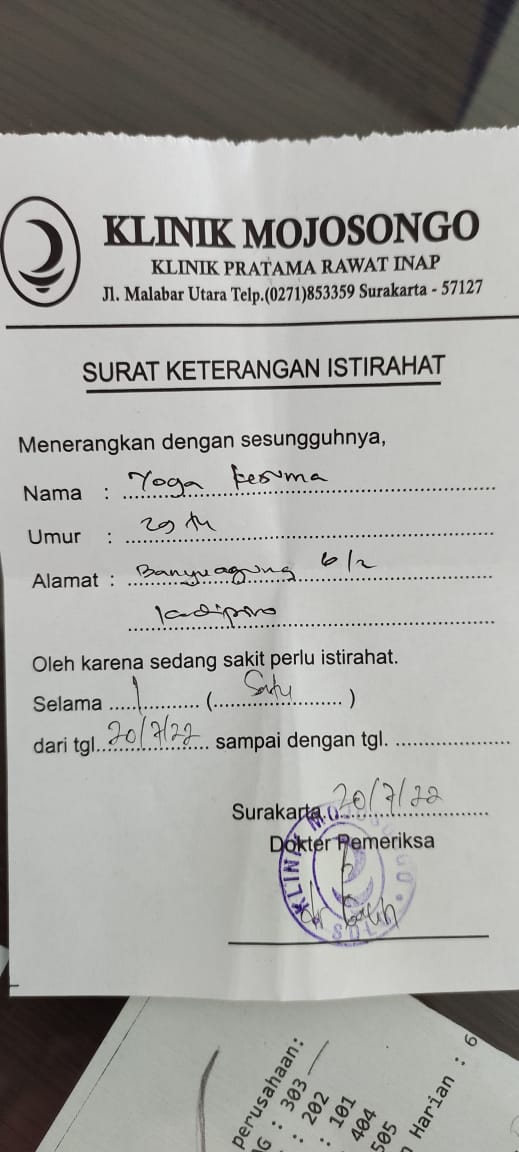 KLINIK MOJOSONGO
KLINIK PRATAMA RAWAT INAP
Jl. Malabar Utara Telp.(0271)853359 Surakarta - 57127
SURAT KETERANGAN ISTIRAHAT
Menerangkan dengan sesungguhnya,
Nama : Yoga Kesuma
Umur : 29 th
Alamat : Banyuagung 6/2
Kadipiro
Oleh karena sedang sakit perlu istirahat.
Selama 1 (Satu)
dari tgl. 20/7/22 sampai dengan tgl.
Surakarta 20/7/22
Dokter Pemeriksa
KLINIK MO
dr
perusahaan:
G : 303
: 202
: 101
404
505
Harian : 6